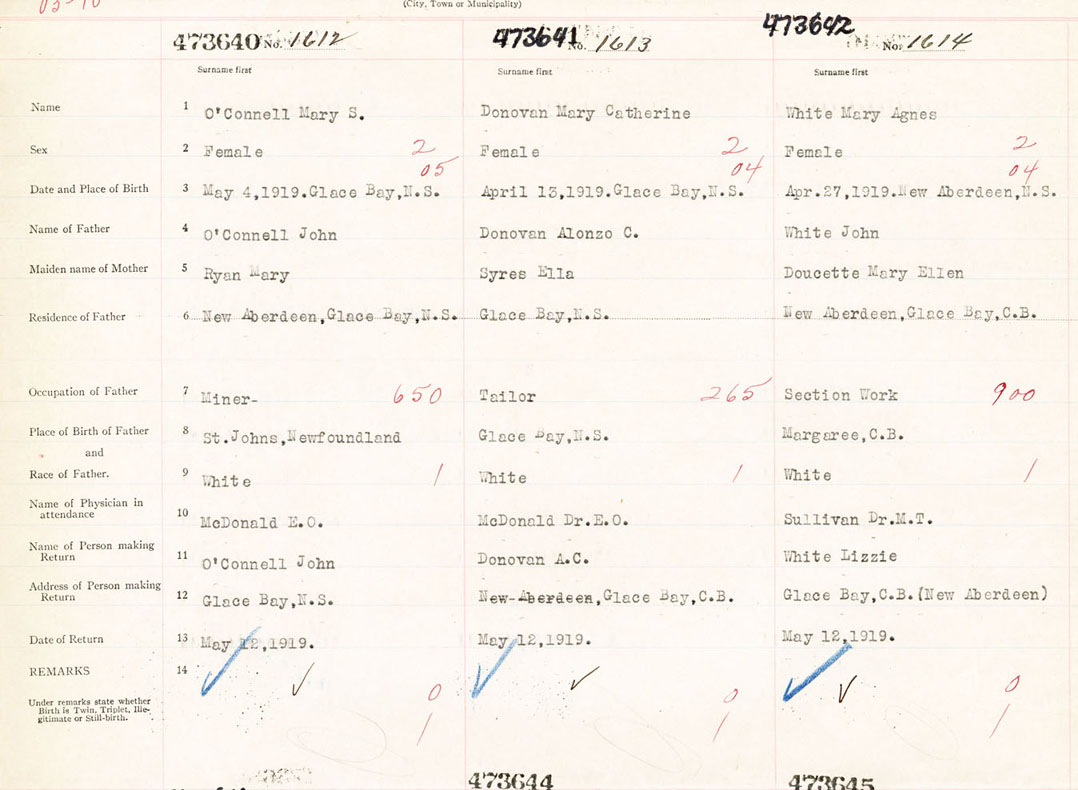 (City, Town or Municipality)
473640 No. 1612 473641 No. 1613 473642 No. 1614
Surname first Surname first Surname first
Name 1 O'Connell Mary S. Donovan Mary Catherine White Mary Agnes
Sex 2 Female 2 Female 2 Female 2
05 04 04
Date and Place of Birth 3 May 4,1919.Glace Bay,N.S. April 13,1919.Glace Bay,N.S. Apr.27,1919.New Aberdeen,N.S.
Name of Father 4 O'Connell John Donovan Alonzo C. White John
Maiden name of Mother 5 Ryan Mary Syres Ella Doucette Mary Ellen
Residence of Father 6 New Aberdeen,Glace Bay,N.S. Glace Bay,N.S. New Aberdeen,Glace Bay,C.B.
Occupation of Father 7 Miner- 650 Tailor 265 Section Work 900
Place of Birth of Father 8 St.Johns,Newfoundland Glace Bay,N.S. Margaree,C.B.
and
Race of Father. 9 White 1 White 1 White 1
Name of Physician in
attendance 10 McDonald E.O. McDonald Dr.E.O. Sullivan Dr.M.T.
Name of Person making
Return 11 O'Connell John Donovan A.C. White Lizzie
Address of Person making
Return 12 Glace Bay,N.S. New-Aberdeen,Glace Bay,C.B. Glace Bay,C.B.(New Aberdeen)
Date of Return 13 May 12,1919. May 12,1919. May 12,1919.
REMARKS 14
Under remarks state whether
Birth is Twin, Triplet, Ille-
gitimate or Still-birth.
0 0 0
1 1 1
473644 473645